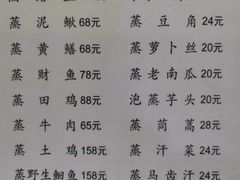 蒸泥鳅 68元 蒸豆角 24元
蒸黄鳝 68元 蒸萝卜丝 20元
蒸财鱼 78元 蒸老南瓜 20元
蒸田鸡 88元 泡蒸芋头 20元
蒸牛肉 65元 蒸茼蒿 28元
蒸土鸡 158元 蒸汗菜 24元
蒸野生鮰鱼 158元 蒸马齿汗 24元